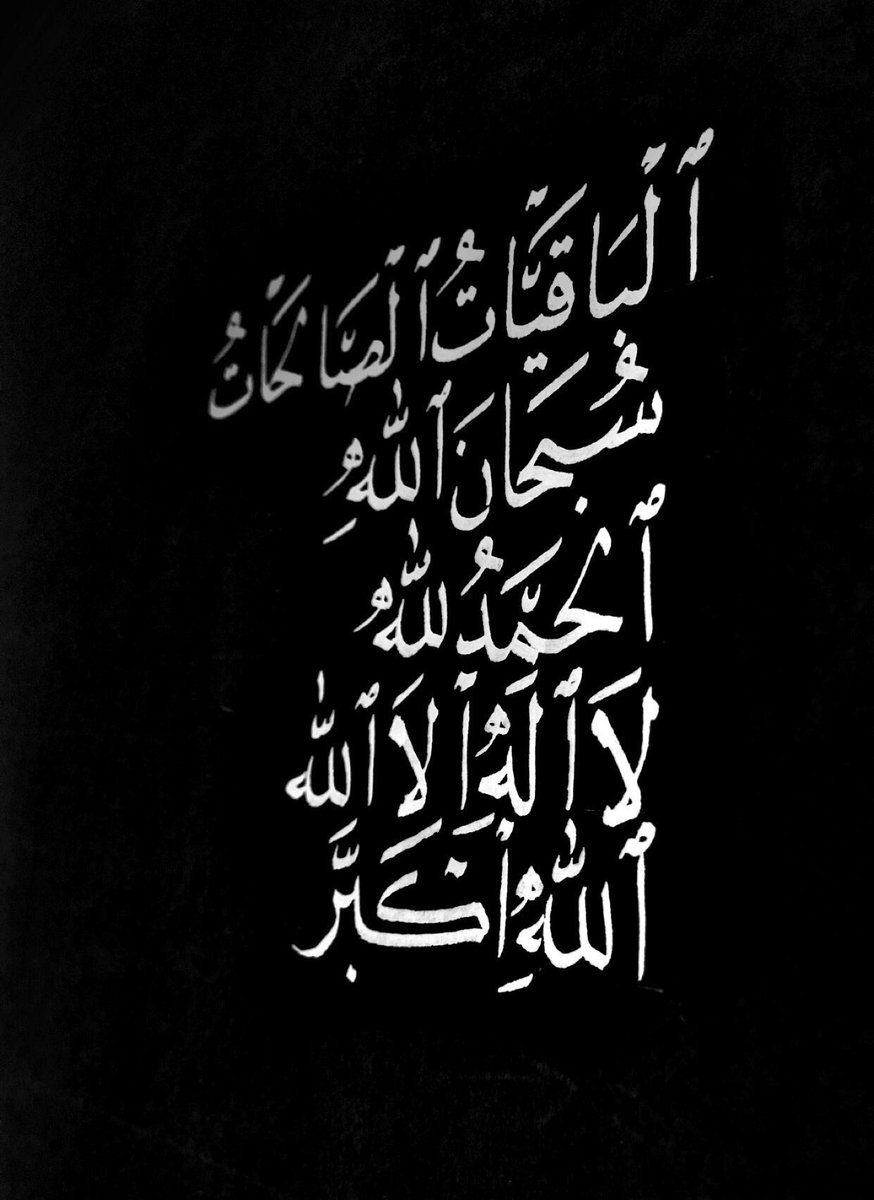 ٱلْبَاقِيَّاتُ ٱلْصَّالَحَاتُ
سُبْحَانَ ٱللّٰهُِ
ٱلْحَمَّدُ للّٰهُ
لاَ ٱلَهُ إَلاَ ٱللّٰه
ٱللّٰهُ إَكَبَرَّ